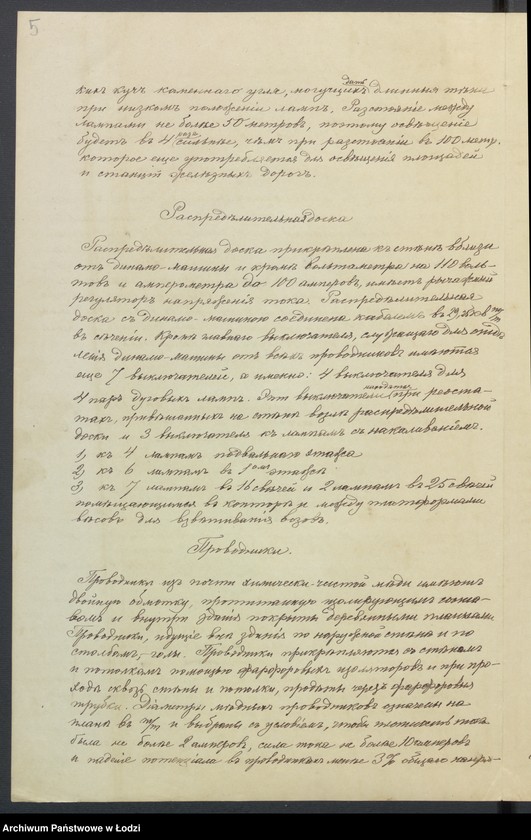 5
кихъ кучъ каменнаго угля, могущихъ дать длинныя тѣни
при низкомъ положеніи лампъ. Разстояніе между
лампами не болѣе 50 метровъ, поэтому освѣщеніе
будетъ въ 4 раза сильнѣе, чѣмъ при разстояніи въ 100 метр.
которое еще употребляется для освѣщенія площадей
и станцій желѣзныхъ дорогъ.
Распредѣлительная доска
Распредѣлительная доска прикрѣплена къ стѣнѣ вблизи
отъ динамо-машины и кромѣ вольтаметра на 110 воль-
товъ и амперометра до 100 амперовъ, имѣетъ рычажный
регуляторъ напряженія тока. Распредѣлительная
доска съ динамо-машиною соединена кабелемъ въ
въ сѣченіи. Кромѣ главнаго выключателя, служащаго для отдѣ-
ленія динамо-машины отъ всѣхъ проводниковъ имѣются
еще 7 выключателей, а именно: 4 выключателя для
4 паръ дуговыхъ лампъ. Эти выключатели находятся при реоста-
тахъ, привѣшанныхъ на стѣнѣ возлѣ распредѣлительной
доски и 3 выключателя къ лампамъ съ накаливаніемъ.
1, къ 4 лампамъ подвальнаго этажа
2, къ 6 лампамъ въ 1омъ этажѣ
3, къ 7 лампамъ въ 16 свѣчей и 2 лампамъ въ 25 свѣчей
помѣщающимся въ конторѣ и между платформами
вѣсовъ для взвѣшиванія возовъ.
Проводники.
Проводники изъ почти химически-чистой мѣди имѣютъ
двойную обмотку, пропитанную изолирующимъ соста-
вомъ и внутри зданія покрыты деревянными планками
Проводники, идущіе внѣ зданія по наружной стѣнѣ и по
столбамъ, голы. Проводники прикрѣпляются къ стѣнамъ
и потолкамъ помощью фарфоровыхъ изоляторовъ и при про-
ходѣ сквозь стѣны и потолки, продѣты чрезъ фарфоровыя
трубки. Діаметры мѣдныхъ проводниковъ означены на
планѣ въ m/m и выбраны съ условіемъ, чтобы плотность тока
была не болѣе 2 амперовъ, сила тока не болѣе 10 амперовъ
и паденіе потенціала въ проводникахъ менѣе 3% общаго напря-
Archiwum Państwowe w Łodzi